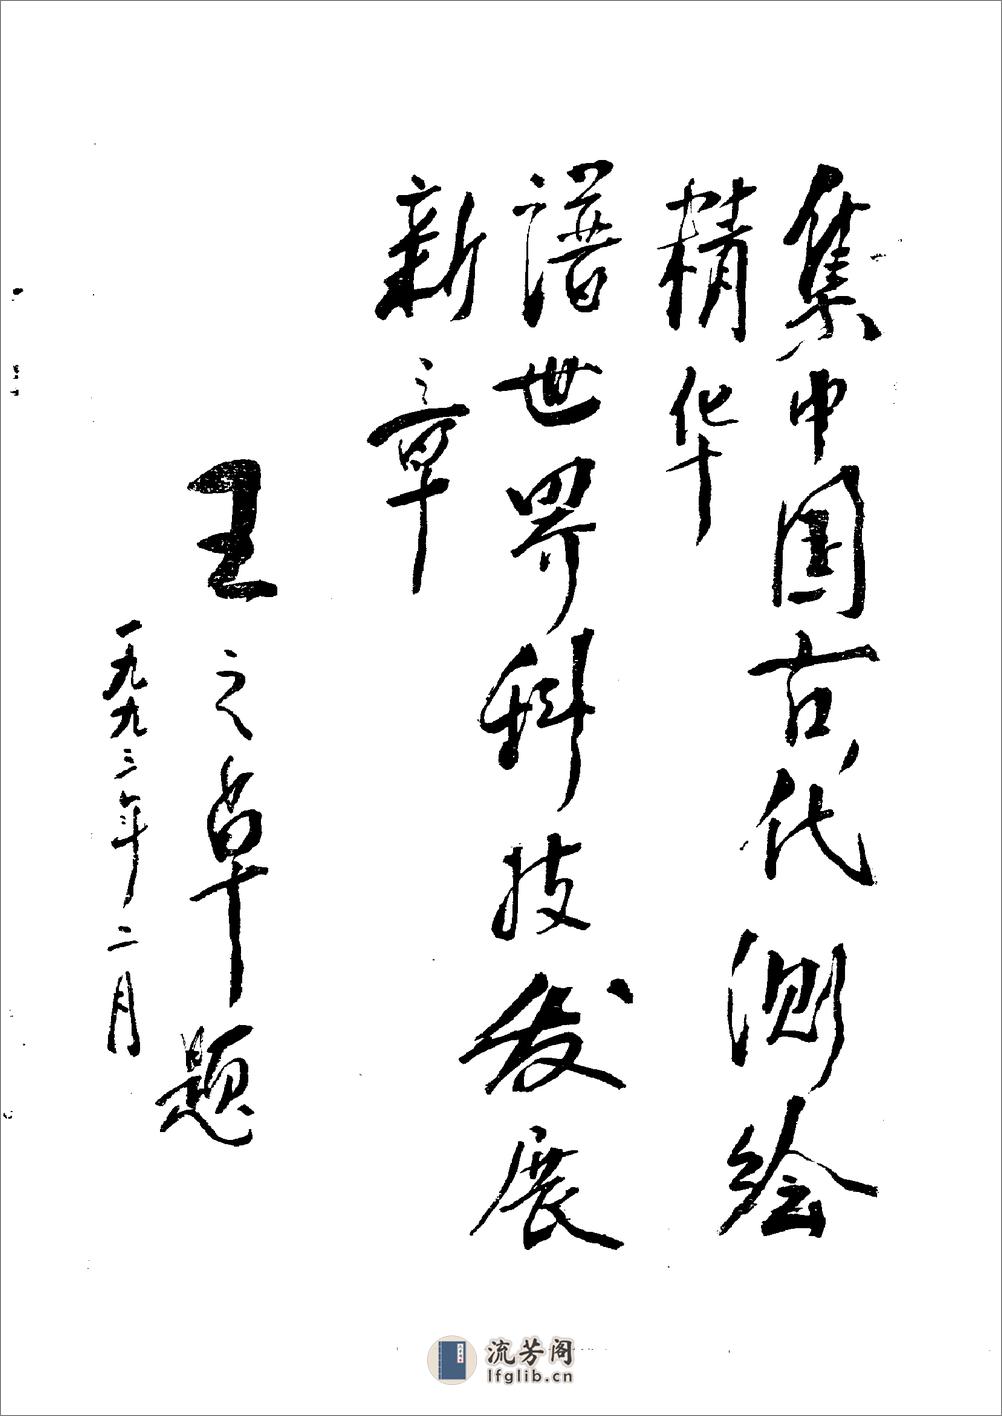 集中国古代测绘
精华
谱世界科技发展
新章
王之卓题
一九九三年二月
流芳阁
lfglib.cn